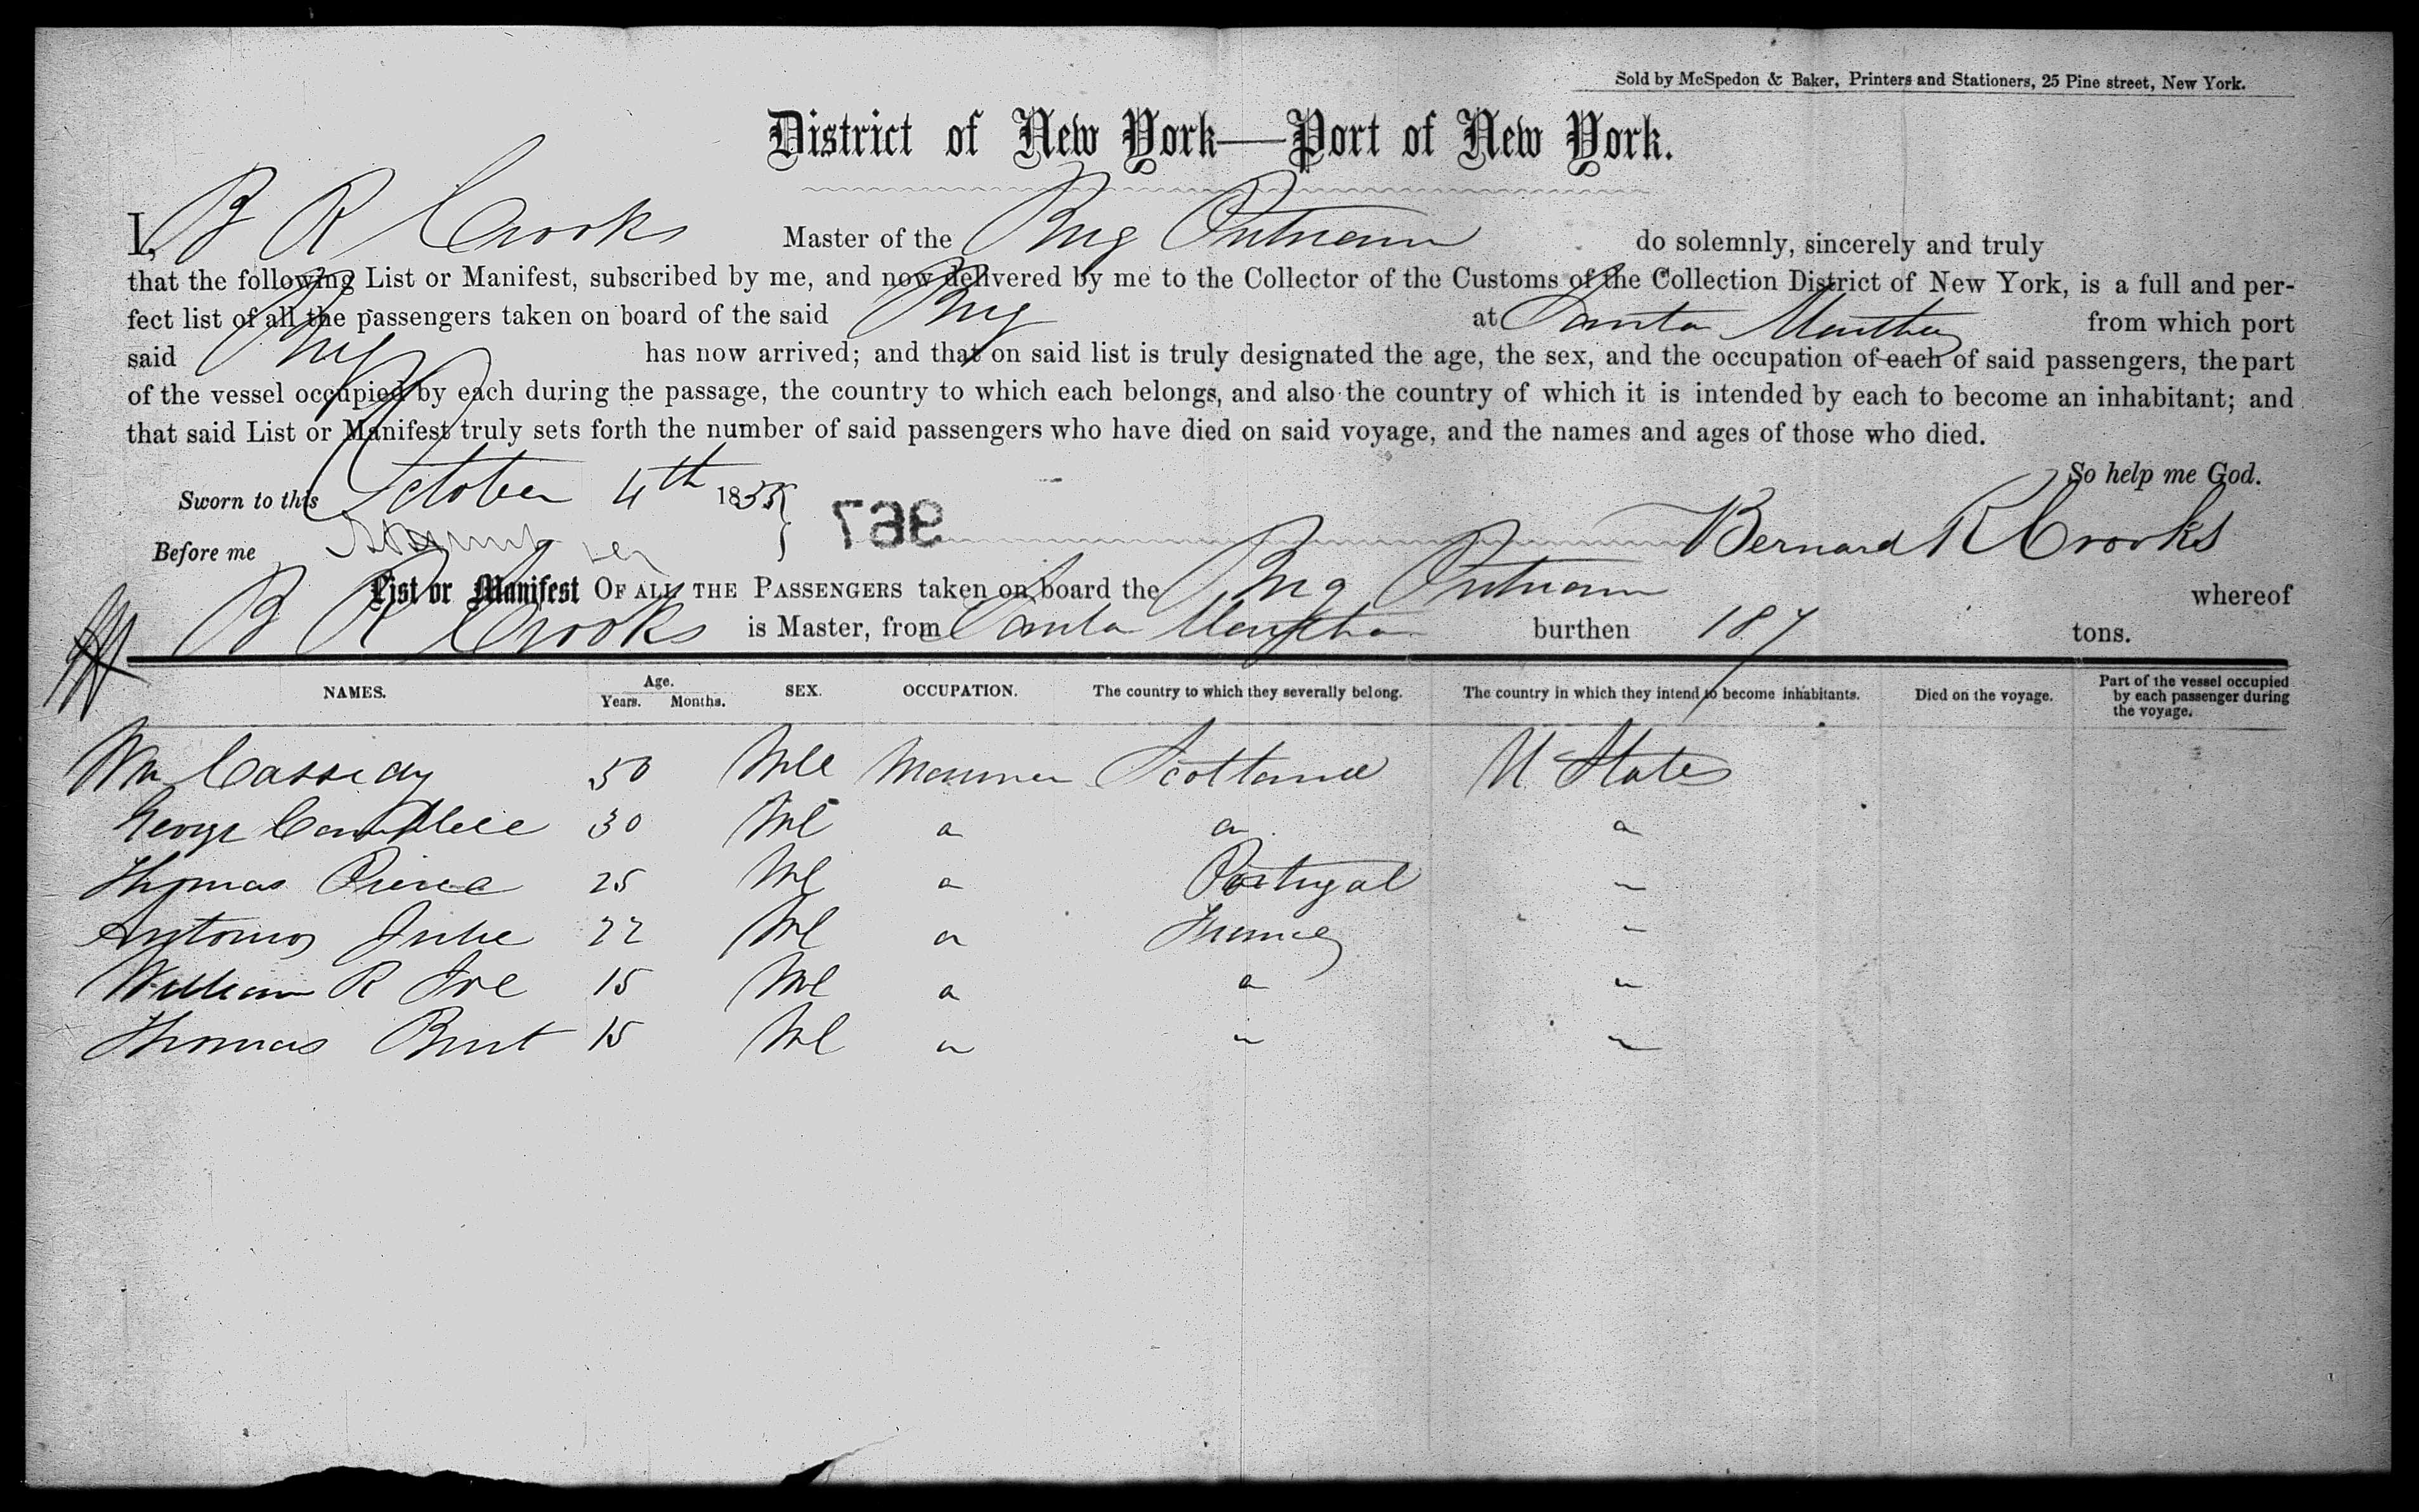 Sold by McSpedon & Baker, Printers and Stationers, 25 Pine street, New York.
District of New York—Port of New York.
I, B R Crooks Master of the Brig Putnam do solemnly, sincerely and truly
that the following List or Manifest, subscribed by me, and now delivered by me to the Collector of the Customs of the Collection District of New York, is a full and per-
fect list of all the passengers taken on board of the said Brig at Santa Martha from which port
said Brig has now arrived; and that on said list is truly designated the age, the sex, and the occupation of each of said passengers, the part
of the vessel occupied by each during the passage, the country to which each belongs, and also the country of which it is intended by each to become an inhabitant; and
that said List or Manifest truly sets forth the number of said passengers who have died on said voyage, and the names and ages of those who died.
So help me God.
Sworn to this October 4th 1855
967
Before me Bernard R Crooks
List or Manifest OF ALL THE PASSENGERS taken on board the Brig Putnam whereof
B R Crooks is Master, from Santa Martha burthen 187 tons.
NAMES. Age. Years. Months. SEX. OCCUPATION. The country to which they severally belong. The country in which they intend to become inhabitants. Died on the voyage. Part of the vessel occupied by each passenger during the voyage.
Wm Cassidy 50 Mle Mariner Scotland U States
George 30 Ml " " "
Thomas Pierce 25 Ml " Portugal "
Antonio 22 Ml " France "
William R 15 Ml " " "
Thomas 15 Ml " " "